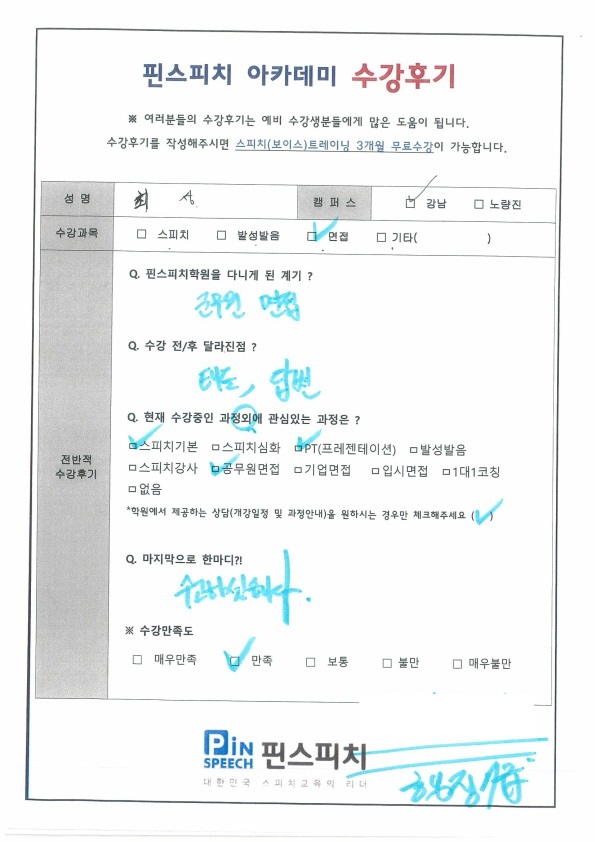 핀스피치 아카데미 수강후기
※ 여러분들의 수강후기는 예비 수강생분들에게 많은 도움이 됩니다.
수강후기를 작성해주시면 스피치(보이스)트레이닝 3개월 무료수강이 가능합니다.
성 명 최 캠 퍼 스 ☑ 강남 □ 노량진
수강과목 □ 스피치 □ 발성발음 ☑ 면접 □ 기타( )
Q. 핀스피치학원을 다니게 된 계기 ?
군무원 면접
Q. 수강 전/후 달라진점 ?
태도, 답변
Q. 현재 수강중인 과정외에 관심있는 과정은 ?
전반적
수강후기
☑스피치기본 □스피치심화 ☑PT(프레젠테이션) □발성발음
□스피치강사 ☑공무원면접 □기업면접 □입시면접 □1대1코칭
□없음
*학원에서 제공하는 상담(개강일정 및 과정안내)을 원하시는 경우만 체크해주세요 (✓)
Q. 마지막으로 한마디?!
수고하셨습니다.
※ 수강만족도
□ 매우만족 ☑ 만족 □ 보통 □ 불만 □ 매우불만
PiN SPEECH 핀스피치
대한민국 스피치교육의 리더